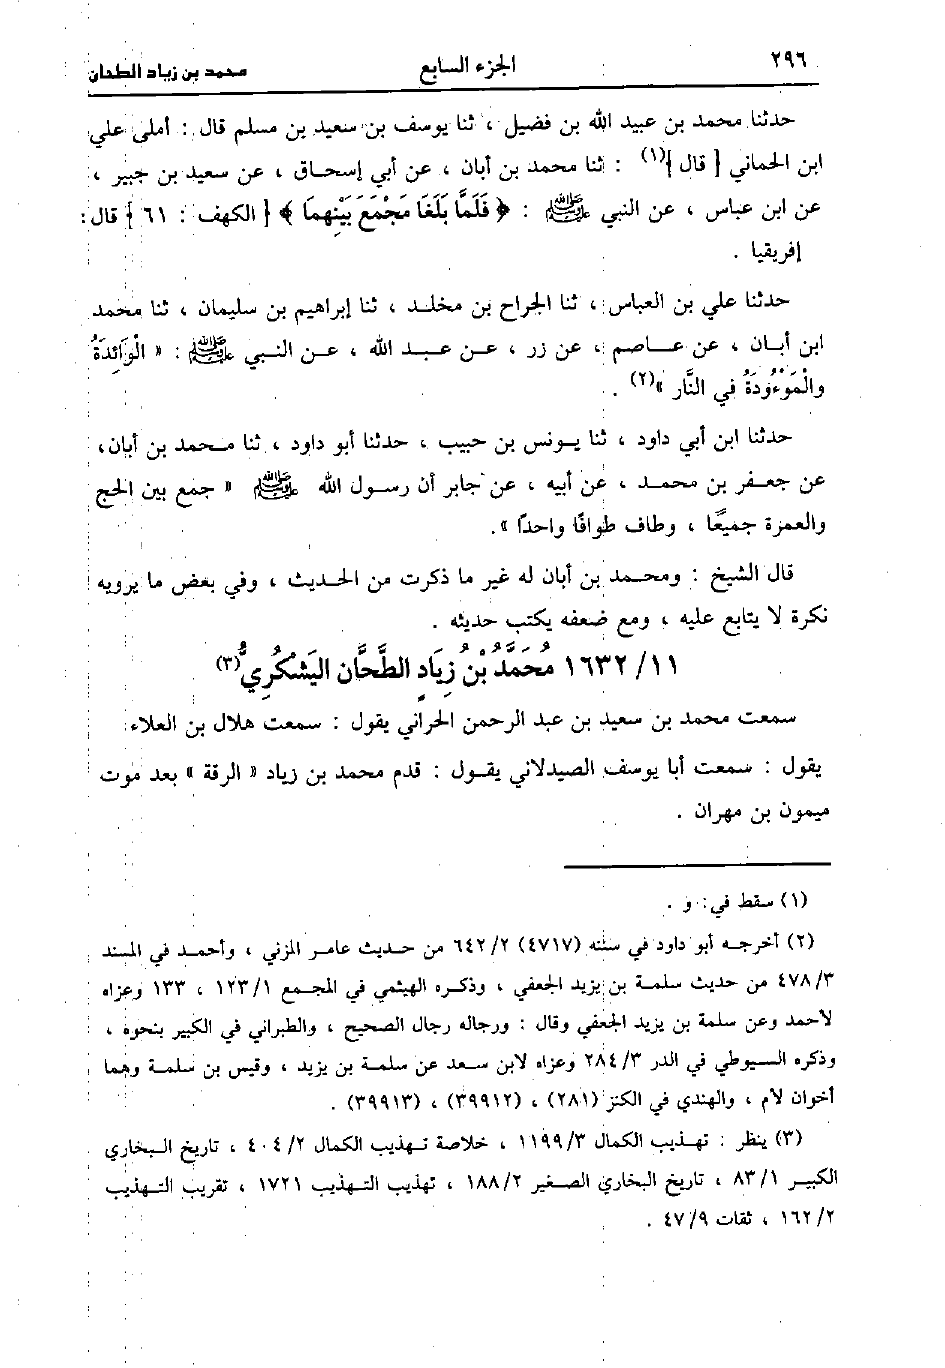 ٢٩٦ الجزء السابع محمد بن زياد الطحان
حدثنا محمد بن عبيد الله بن فضيل ، ثنا يوسف بن سعيد بن مسلم قال : أملى علي
ابن الحماني [ قال ](١) : ثنا محمد بن أبان ، عن أبي إسحاق ، عن سعيد بن جبير ،
عن ابن عباس ، عن النبي ﷺ : ﴿ فَلَمَّا بَلَغَا مَجْمَعَ بَيْنِهِمَا ﴾ [ الكهف : ٦١ ] قال :
إفريقيا .
حدثنا علي بن العباس ، ثنا الجراح بن مخلد ، ثنا إبراهيم بن سليمان ، ثنا محمد
ابن أبان ، عن عاصم ، عن زر ، عن عبد الله ، عن النبي ﷺ : « الْوَائِدَةُ
والْمَوْءُودَةُ في النَّار »(٢) .
حدثنا ابن أبي داود ، ثنا يونس بن حبيب ، حدثنا أبو داود ، ثنا محمد بن أبان ،
عن جعفر بن محمد ، عن أبيه ، عن جابر أن رسول الله ﷺ « جمع بين الحج
والعمرة جميعًا ، وطاف طوافًا واحدًا » .
قال الشيخ : ومحمد بن أبان له غير ما ذكرت من الحديث ، وفي بعض ما يرويه
نكرة لا يتابع عليه ، ومع ضعفه يكتب حديثه .
١١/ ١٦٣٢ مُحَمَّدُ بْنُ زِيَادٍ الطَّحَّان اليَشْكُرِيُّ(٣)
سمعت محمد بن سعيد بن عبد الرحمن الحراني يقول : سمعت هلال بن العلاء
يقول : سمعت أبا يوسف الصيدلاني يقول : قدم محمد بن زياد « الرقة » بعد موت
ميمون بن مهران .
(١) سقط في : و .
(٢) أخرجه أبو داود في سننه (٤٧١٧) ٦٤٢/٢ من حديث عامر المزني ، وأحمد في المسند
٤٧٨/٣ من حديث سلمة بن يزيد الجعفي ، وذكره الهيثمي في المجمع ١٢٣/١ ، ١٣٣ وعزاه
لأحمد وعن سلمة بن يزيد الجعفي وقال : ورجاله رجال الصحيح ، والطبراني في الكبير بنحوه ،
وذكره السيوطي في الدر ٢٨٤/٣ وعزاه لابن سعد عن سلمة بن يزيد ، وقيس بن سلمة وهما
أخوان لأم ، والهندي في الكنز (٢٨١) ، (٣٩٩١٢) ، (٣٩٩١٣) .
(٣) ينظر : تهذيب الكمال ١١٩٩/٣ ، خلاصة تهذيب الكمال ٤٠٤/٢ ، تاريخ البخاري
الكبير ٨٣/١ ، تاريخ البخاري الصغير ١٨٨/٢ ، تهذيب التهذيب ١٧٢١ ، تقريب التهذيب
١٦٢/٢ ، ثقات ٤٧/٩ .